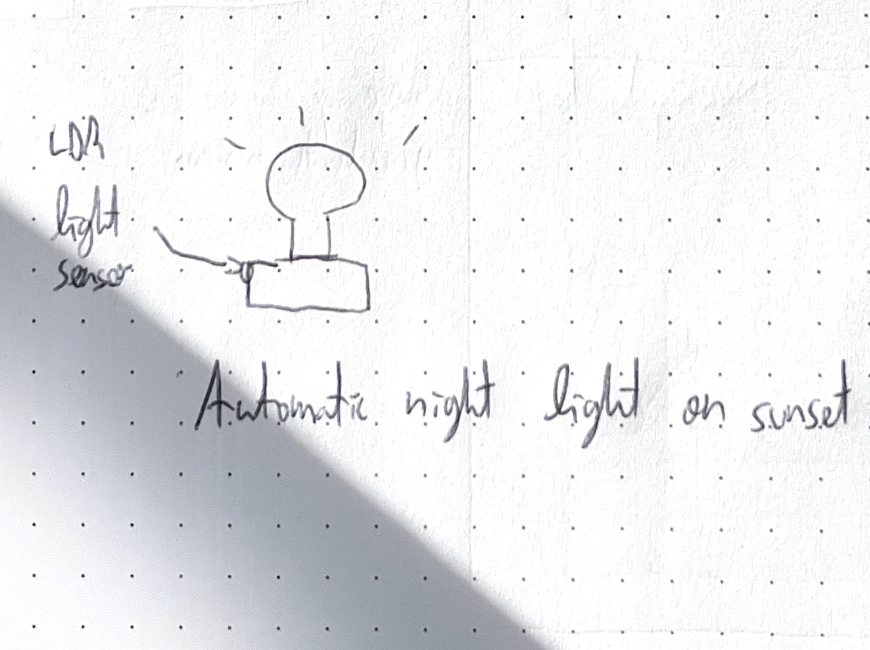 LDR
light
sensor
Automatic night light on sunset